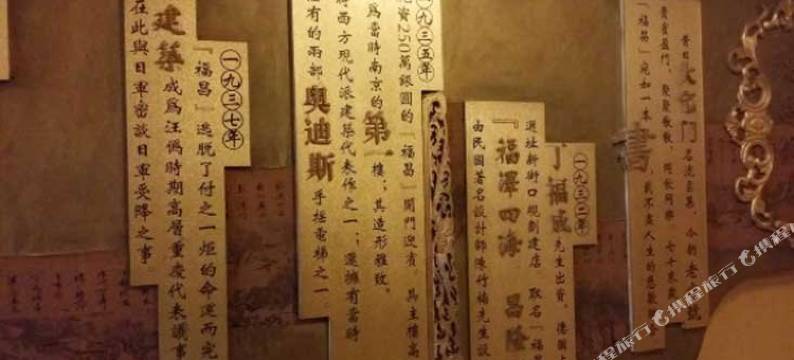 昔日大宅門名流雲集，今朝老號
賓客盈門，
「福昌」宛如一本書，
一九三二年
丁福成先生出資，德國
選址新街口規劃建店 取名「福
『福澤四海 昌隆
由民國著名設計師陳竹楠先生設
一九三五年
資250萬銀圓的「福昌」開門迎客，其主樓高
爲當時南京的第一樓；其造形雅致。
時西方現代派建築代表作之一；還擁有當時
有的兩部奧迪斯手搖電梯之一
一九三七年
『福昌』逃脫了付之一炬的命運而完
建築成爲汪僞時期高層重慶代表議事
在此與日軍密談日軍受降之事
携程旅行
携程旅行